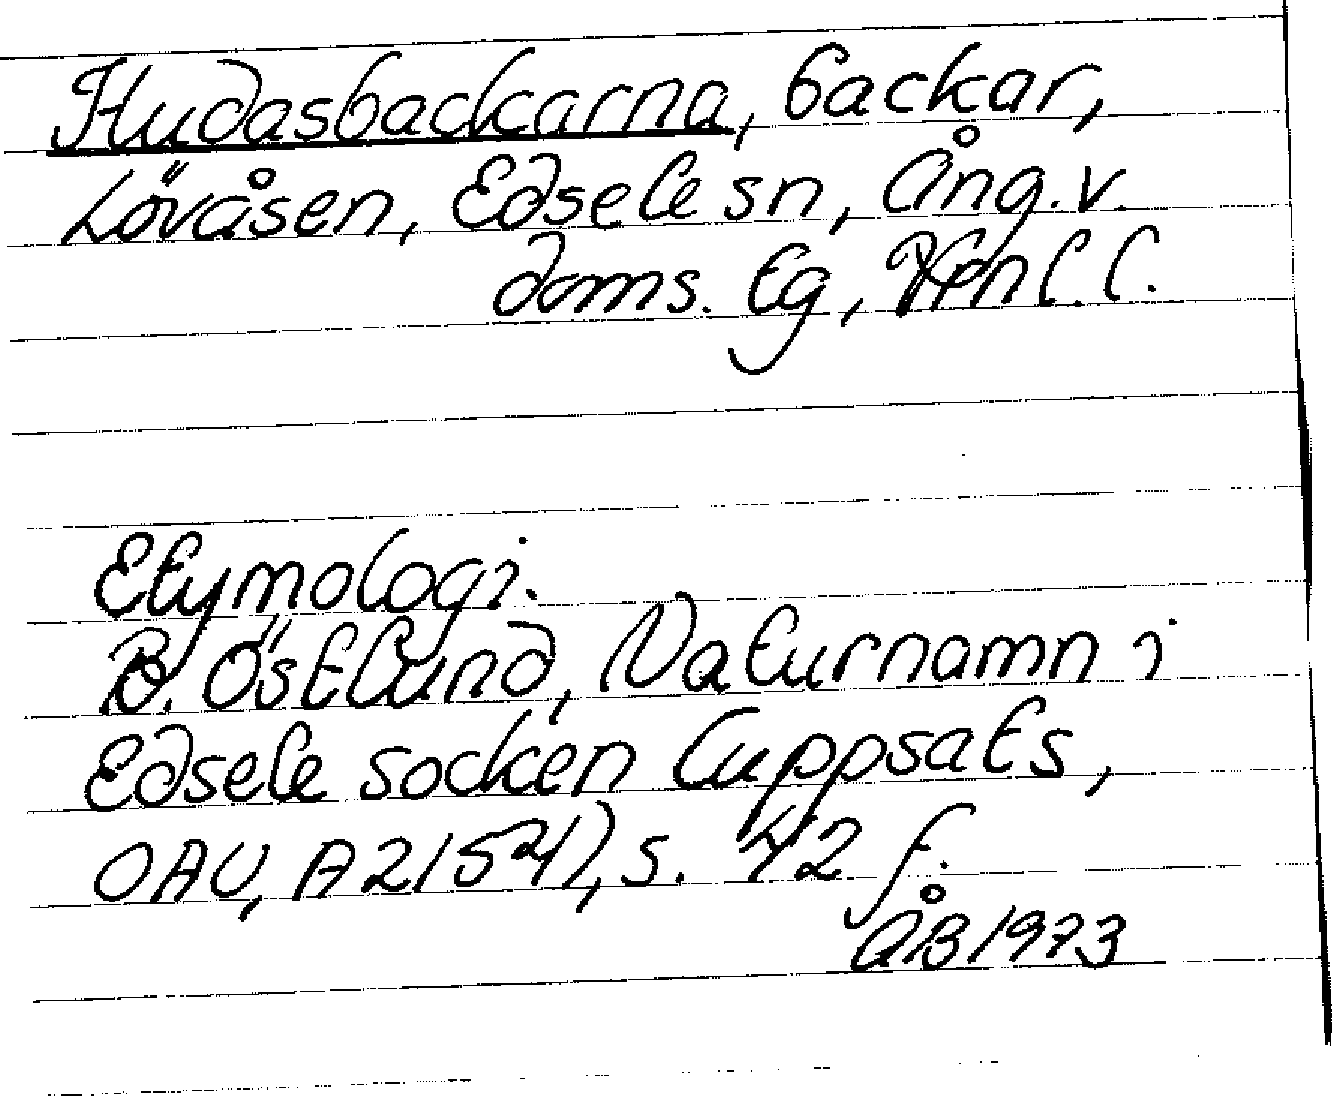 Hudasbackarna, backar,
Lövåsen, Edsele sn, Ång.v.
doms. tg, Vfnl. l.
Etymologi.
B. Östlund, Naturnamn i
Edsele socken (uppsats,
OAU, A21541), s. 42 f.
ÅB 1973